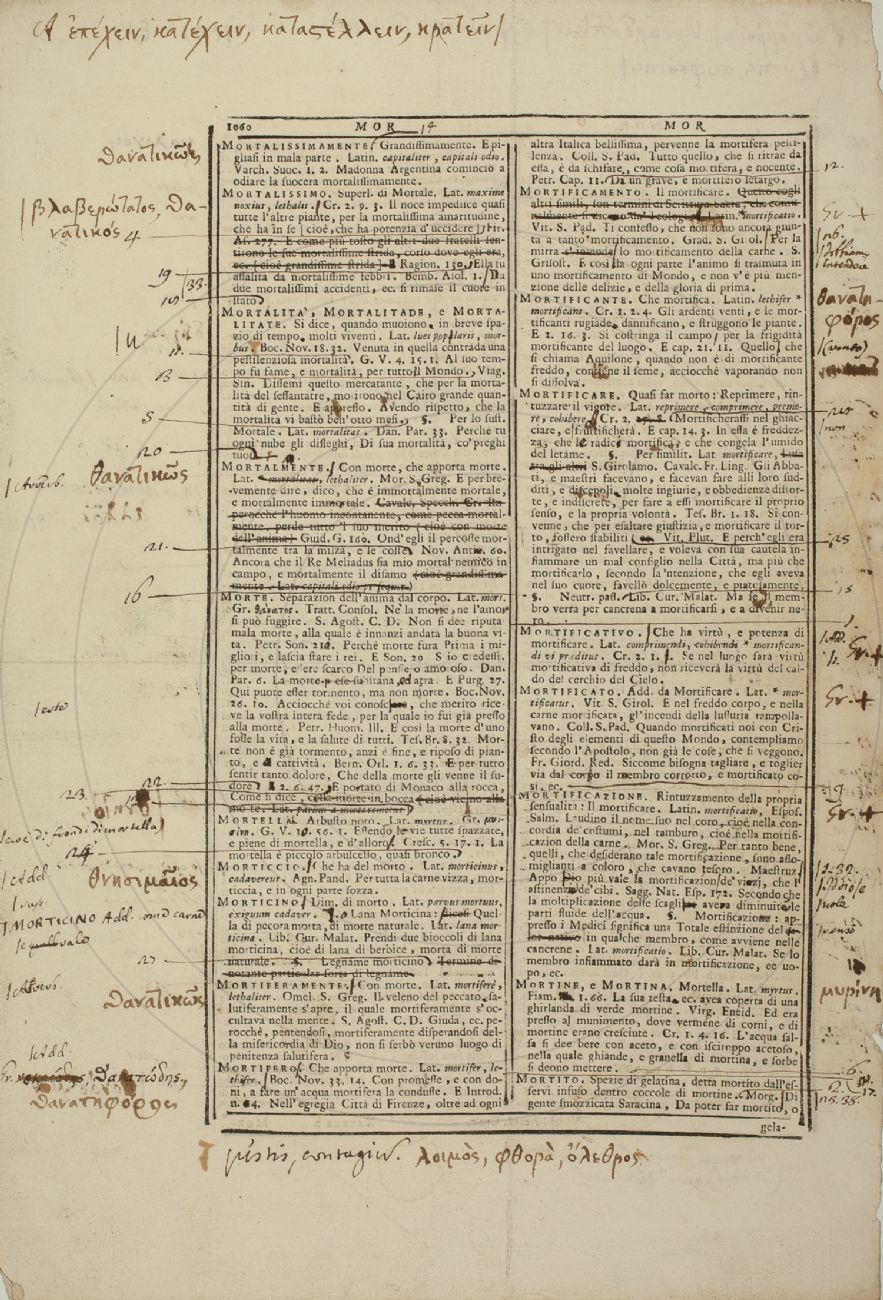 ἐπέχειν, κατέχειν, καταστέλλειν, κρατεῖν
1060 MOR MOR
MORTALISSIMAMENTE. Grandissimamente. Epi-
gliasi in mala parte. Latin. capitaliter, capitali odio.
Varch. Suoc. 1. 2. Madonna Argentina cominciò a
odiare la suocera mortalissimamente.
MORTALISSIMO. Superl. di Mortale. Lat. maxime
noxius, lethalis. Cr. 2. 9. 3. Il noce impedisce quasi
tutte l'altre piante, per la mortalissima amaritudine,
che ha in se (cioè, che ha potenzia d'uccidere) Fir.
As. 277. E come più tosto gli altri due fratelli sen-
tirono le sue mortalissime strida, corso dove egli era,
ec. (cioè grandissime strida) Ragion. 130. Ella fu
assalita da mortalissime febbri. Bemb. Asol. 1. Da
due mortalissimi accidenti, ec. si rimase il cuore in
stato
MORTALITA', MORTALITADE, e MORTA-
LITATE. Si dice, quando muoiono in breve spa-
zio di tempo, molti viventi. Lat. lues popularis, mor-
bus. Boc. Nov. 18. 32. Venuta in quella contrada una
pestilenziosa mortalità. G. V. 4. 15. 1. Al suo tem-
po fu fame, e mortalità, per tutto il Mondo. Viag.
Sin. Dissemi questo mercatante, che per la morta-
lità del sessantatre, morirono nel Cairo grande quan-
tità di gente. E appresso. Avendo rispetto, che la
mortalità vi bastò ben'otto mesi. §. Per lo sust.
Mortale. Lat. mortalitas. Dan. Par. 33. Perchè tu
ogni nube gli disleghi, Di sua mortalità, co' preghi
tuoi
MORTALMENTE. Con morte, che apporta morte.
Lat. mortaliter, lethaliter. Mor. S. Greg. E per bre-
vemente dire, dico, che è immortalmente mortale,
e mortalmente immortale. Cavalc. Specch. Cr.
perocchè l'huomo incontanente, come pecca mortal-
mente, perde tutto 'l suo merito (cioè con morte
dell'anima) Guid. G. 160. Ond'egli il percosse mor-
talmente tra la milza, e le coste. Nov. Ant. 60.
Ancora che il Re Meliadus sia mio mortal nemico in
campo, e mortalmente il disamo (cioè grandissima-
mente. Lat. capitali odio
MORTE. Separazion dell'anima dal corpo. Lat. mors.
Gr. θάνατος. Tratt. Consol. Nè la morte, ne l'amor
si può fuggire. S. Agost. C. D. Non si dee riputa
mala morte, alla quale è innanzi andata la buona vi-
ta. Petr. Son. 210. Perchè morte fura Prima i mi-
gliori, e lascia stare i rei. E Son. 20 S'io credessi,
per morte, essere scarco Del pensier amoroso. Dan.
Par. 6. La morte prese subitana, ed atra. E Purg. 27.
Qui puote esser tormento, ma non morte. Boc. Nov.
26. 10. Acciocchè voi conosciate, che merito rice-
ve la vostra intera fede, per la quale io fui già presso
alla morte. Petr. Huom. Ill. E così la morte d'uno
fosse la vita, e la salute di tutti. Tes. Br. 8. 32. Mor-
te non è già tormento, anzi è fine, e riposo di pian-
to, e di cattività. Bern. Orl. 1. 6. 33. E per tutto
sentir tanto dolore, Che della morte gli venne il su-
dore. E 2. 6. 47. E portato di Monaco alla rocca,
Come si dice, colla morte in bocca (cioè vicino alla
morte. Lat.
MORTELLA. Arbusto noto. Lat. myrtus. Gr. μυρ-
σίνη. G. V. 10. 56. 1. Essendo le vie tutte spazzate,
e piene di mortella, e d'alloro. Cresc. 5. 17. 1. La
mortella è piccolo arbuscello, quasi bronco.
MORTICCIO. Che ha del morto. Lat. morticinus,
cadaverosus. Agn. Pand. Per tutta la carne vizza, mor-
ticcia, e in ogni parte sozza.
MORTICINO. Dim. di morto. Lat. parvus mortuus,
exiguum cadaver. Lana Morticina: dicesi Quel-
la di pecora morta, di morte naturale. Lat. lana mor-
ticina. Lib. Cur. Malat. Prendi due bioccoli di lana
morticina, cioè di lana di berbice, morta di morte
naturale. §. Legname morticino. Termino di-
notante particular sorta di legname.
MORTIFERAMENTE. Con morte. Lat. mortiferè,
lethaliter. Omel. S. Greg. Il veleno del peccato, sa-
lutiferamente s'apre, il quale mortiferamente s'oc-
cultava nella mente. S. Agost. C. D. Giuda, ec. pe-
rocchè, pentendosi, mortiferamente disperandosi del-
la misericordia di Dio, non si serbò veruno luogo di
penitenza salutifera.
MORTIFERO. Che apporta morte. Lat. mortifer, le-
thifer. Boc. Nov. 33. 14. Con promesse, e con do-
ni, a fare un'acqua mortifera la condusse. E Introd.
n. 4. Nell'egregia Città di Firenze, oltre ad ogni
altra Italica bellissima, pervenne la mortifera pesti-
lenza. Coll. S. Pad. Tutto quello, che si ritrae da
essa, è da schifare, come cosa mortifera, e nocente.
Petr. Cap. 11. Da un grave, e mortifero letargo.
MORTIFICAMENTO. Il mortificare. Questo cogli
altri simili, son termini di Scrittura sacra, che comu-
nalmente si dicono da' Teologi. Latin. mortificatio.
Vit. S. Pad. Ti confesso, che non sono ancora giun-
ta a tanto mortificamento. Grad. S. Girol. Per la
mirra s'intende lo mortificamento della carne. S.
Grisost. E così da ogni parte l'animo si tramuta in
uno mortificamento di Mondo, e non v'è più men-
zione delle delizie, e della gloria di prima.
MORTIFICANTE. Che mortifica. Latin. lethifer *
mortificans. Cr. 1. 2. 4. Gli ardenti venti, e le mor-
tificanti rugiade, dannificano, e struggono le piante.
E 2. 16. 3. Si costringa il campo, per la frigidità
mortificante del luogo. E cap. 21. 11. Quello, che
si chiama Aquilone, quando non è di mortificante
freddo, contiene il seme, acciocchè vaporando non
si dissolva.
MORTIFICARE. Quasi far morto: Reprimere, rin-
tuzzare il vigore. Lat. reprimere, comprimere, preme-
re, cohibere. Cr. 2. (Mortificherassi nel ghiac-
ciare, e s'infistichera. E cap. 14. 3. In essa è freddez-
za, che le radici mortifica, e che congela l'umido
del letame. §. Per similit. Lat mortificare,
tra gli altri S. Girolamo. Cavalc. Fr. Ling. Gli Abba-
ti, e maestri facevano, e facevan fare alli loro sud-
diti, e discepoli, molte ingiurie, e obbedienze disor-
te, e indiscrete, per fare a essi mortificare il proprio
senso, e la propria volontà. Tes. Br. 1. 18. Si con-
venne, che per esaltare giustizia, e mortificare il tor-
to, fossero stabiliti Vit. Plut. E perch'egli era
intrigato nel favellare, e voleva con sua cautela in-
fiammare un mal consiglio nella Città, ma più che
mortificarlo, secondo la 'ntenzione, che egli aveva
nel suo cuore, favellò dolcemente, e piatosamente.
§. Neutr. pass. Lib. Cur. Malat. Ma se il mem-
bro verrà per cancrena a mortificarsi, e a divenir ne-
ro.
MORTIFICATIVO. Che ha virtù, e potenza di
mortificare. Lat. comprimendi, cohibendi * mortifican-
di vi præditus. Cr. 2. 1. Se nel luogo sarà virtù
mortificativa di freddo, non riceverà la virtù del cal-
do del cerchio del Cielo.
MORTIFICATO. Add. da Mortificare. Lat. * mor-
tificatus. Vit. S. Girol. E nel freddo corpo, e nella
carne mortificata, gl'incendi della lussuria rampolla-
vano. Coll. S. Pad. Quando mortificati noi con Cri-
sto degli elementi di questo Mondo, contempliamo
secondo l'Apostolo, non già le cose, che si veggono.
Fr. Giord. Red. Siccome bisogna tagliare, e toglier
via dal corpo il membro corrotto, e mortificato co-
sì, ec.
MORTIFICAZIONE. Rintuzzamento della propria
sensualità: Il mortificare. Latin. mortificatio, Espos.
Salm. Laudino il nome suo nel coro, cioè nella con-
cordia de' costumi, nel tamburo, cioè nella mortifi-
cazion della carne. Mor. S. Greg. Per tanto bene,
quelli, che desiderano tale mortificazione, sono asso-
miglianti a coloro, che cavano tesoro. Maestruz.
Appo Dio più vale la mortificazion de' vizi, che l'
astinenza de' cibi. Sagg. Nat. Esp. 172. Secondo che
la moltiplicazione delle scaglie aveva diminuite le
parti fluide dell'acqua. §. Mortificazione: ap-
presso i Medici significa una Totale estinzione del ca-
lor nativo in qualche membro, come avviene nelle
cancrene. Lat. mortificatio. Lib. Cur. Malat. Se lo
membro infiammato darà in mortificazione, ee uo-
po, ec.
MORTINE, e MORTINA. Mortella. Lat. myrtus.
Fiam. 1. 66. La sua testa, ec. avea coperta di una
ghirlanda di verde mortine. Virg. Eneid. Ed era
presso al munimento, dove vermene di corni, e di
mortine erano cresciute. Cr. 1. 4. 16. L'acqua sal-
sa si dee bere con aceto, e con isciroppo acetoso,
nella quale ghiande, e granella di mortina, e sorbe
si deono mettere.
MORTITO. Spezie di gelatina, detta mortito dall'es-
servi infuso dentro coccole di mortine. Morg. Di
gente smozzicata Saracina, Da poter far mortito, o
gela-
14
θανατικῶς
βλαβερώτατος, θα-
νατικός
4
19
33.
13
5
20
θανατικῶς
21.
16
22.
23.
24.
θνησιμαῖος
MORTICINO Add.
27
θανατικῶς
θανατώδης,
θανατηφόρος
12.
Gr +
θανατη-
φόρος
25
15
Gr +
Gr +
19
Gr +
μυρίνη
6.
12.
17.
35.
pestis, contagium. λοιμὸς, φθορὰ, ὄλεθρος